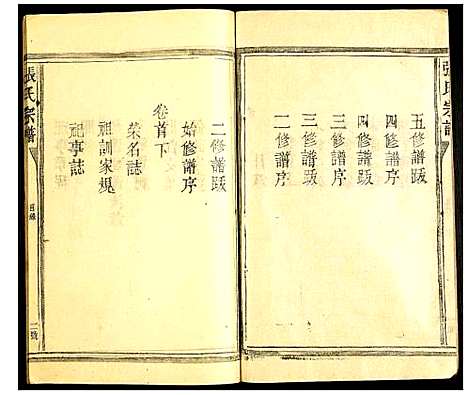 張氏宗譜
五修譜跋
四修譜序
四修譜跋
三修譜序
三修譜跋
二修譜序
二修譜跋
始修譜序
卷首下
榮名誌
祖訓家規
祀事誌
張氏宗譜
目錄
二